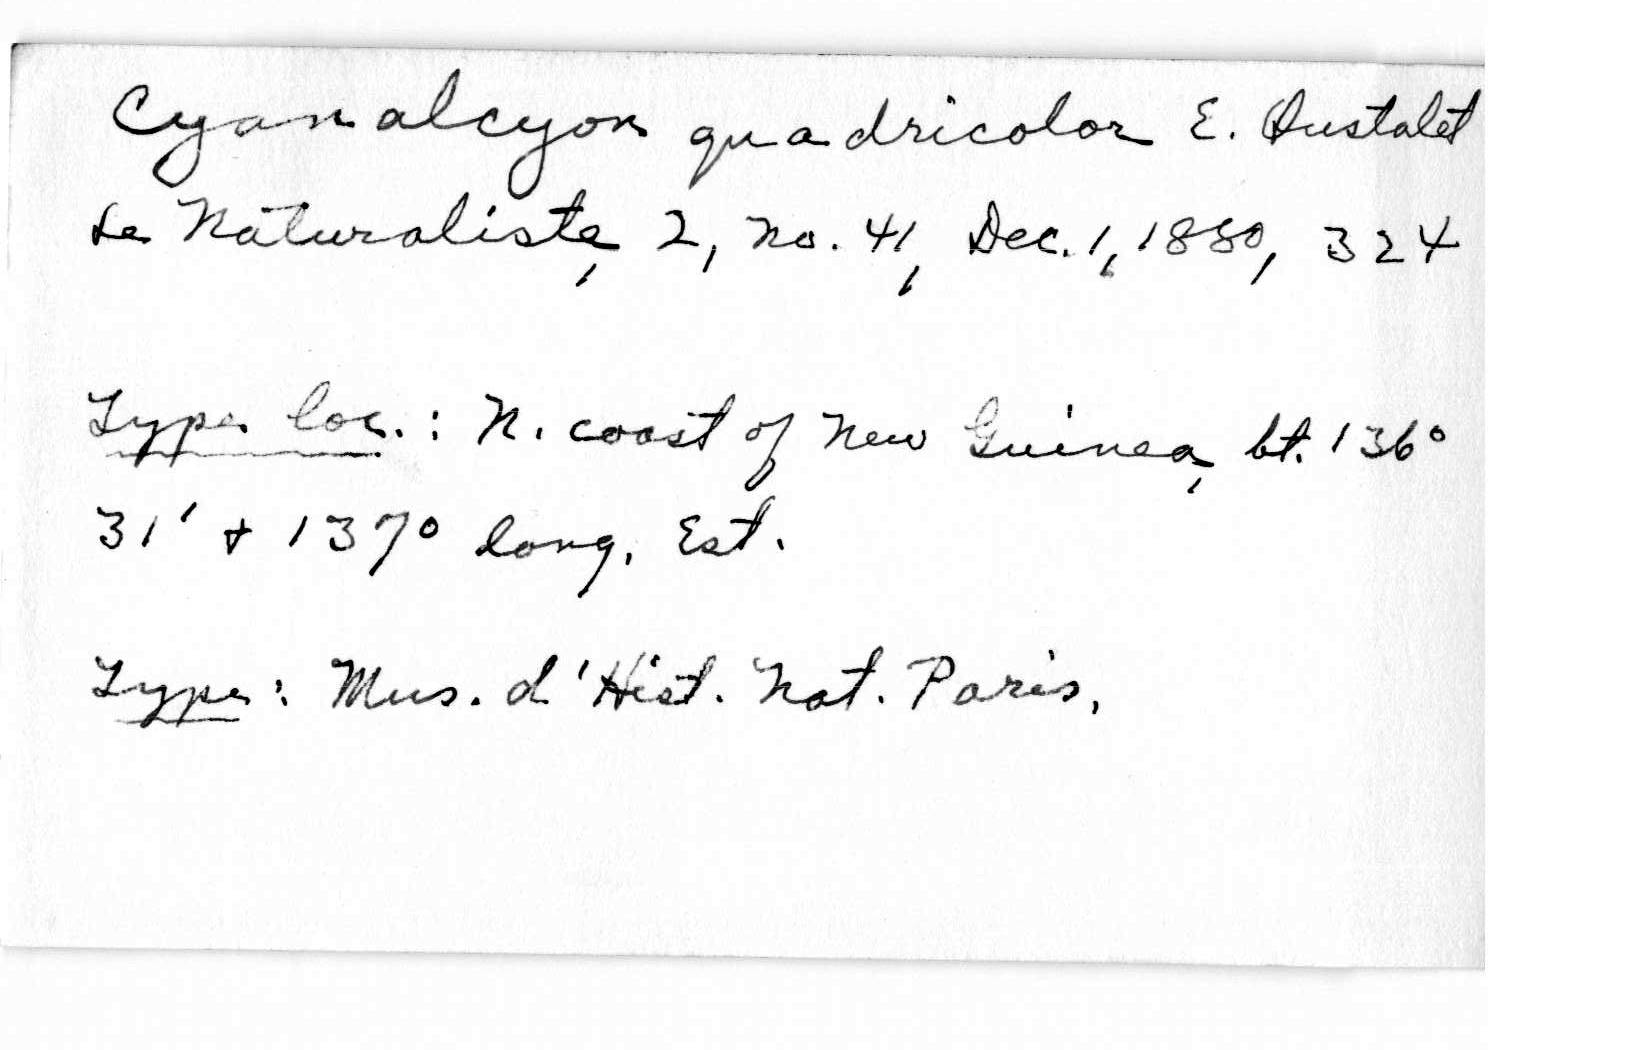 Cyanalcyon quadricolor E. Oustalet
Le Naturaliste, 2, no. 41, Dec. 1, 1880, 324
Type loc.: N. coast of New Guinea, bt. 136°
31' + 137° long. Est.
Type: Mus. d'Hist. Nat. Paris.